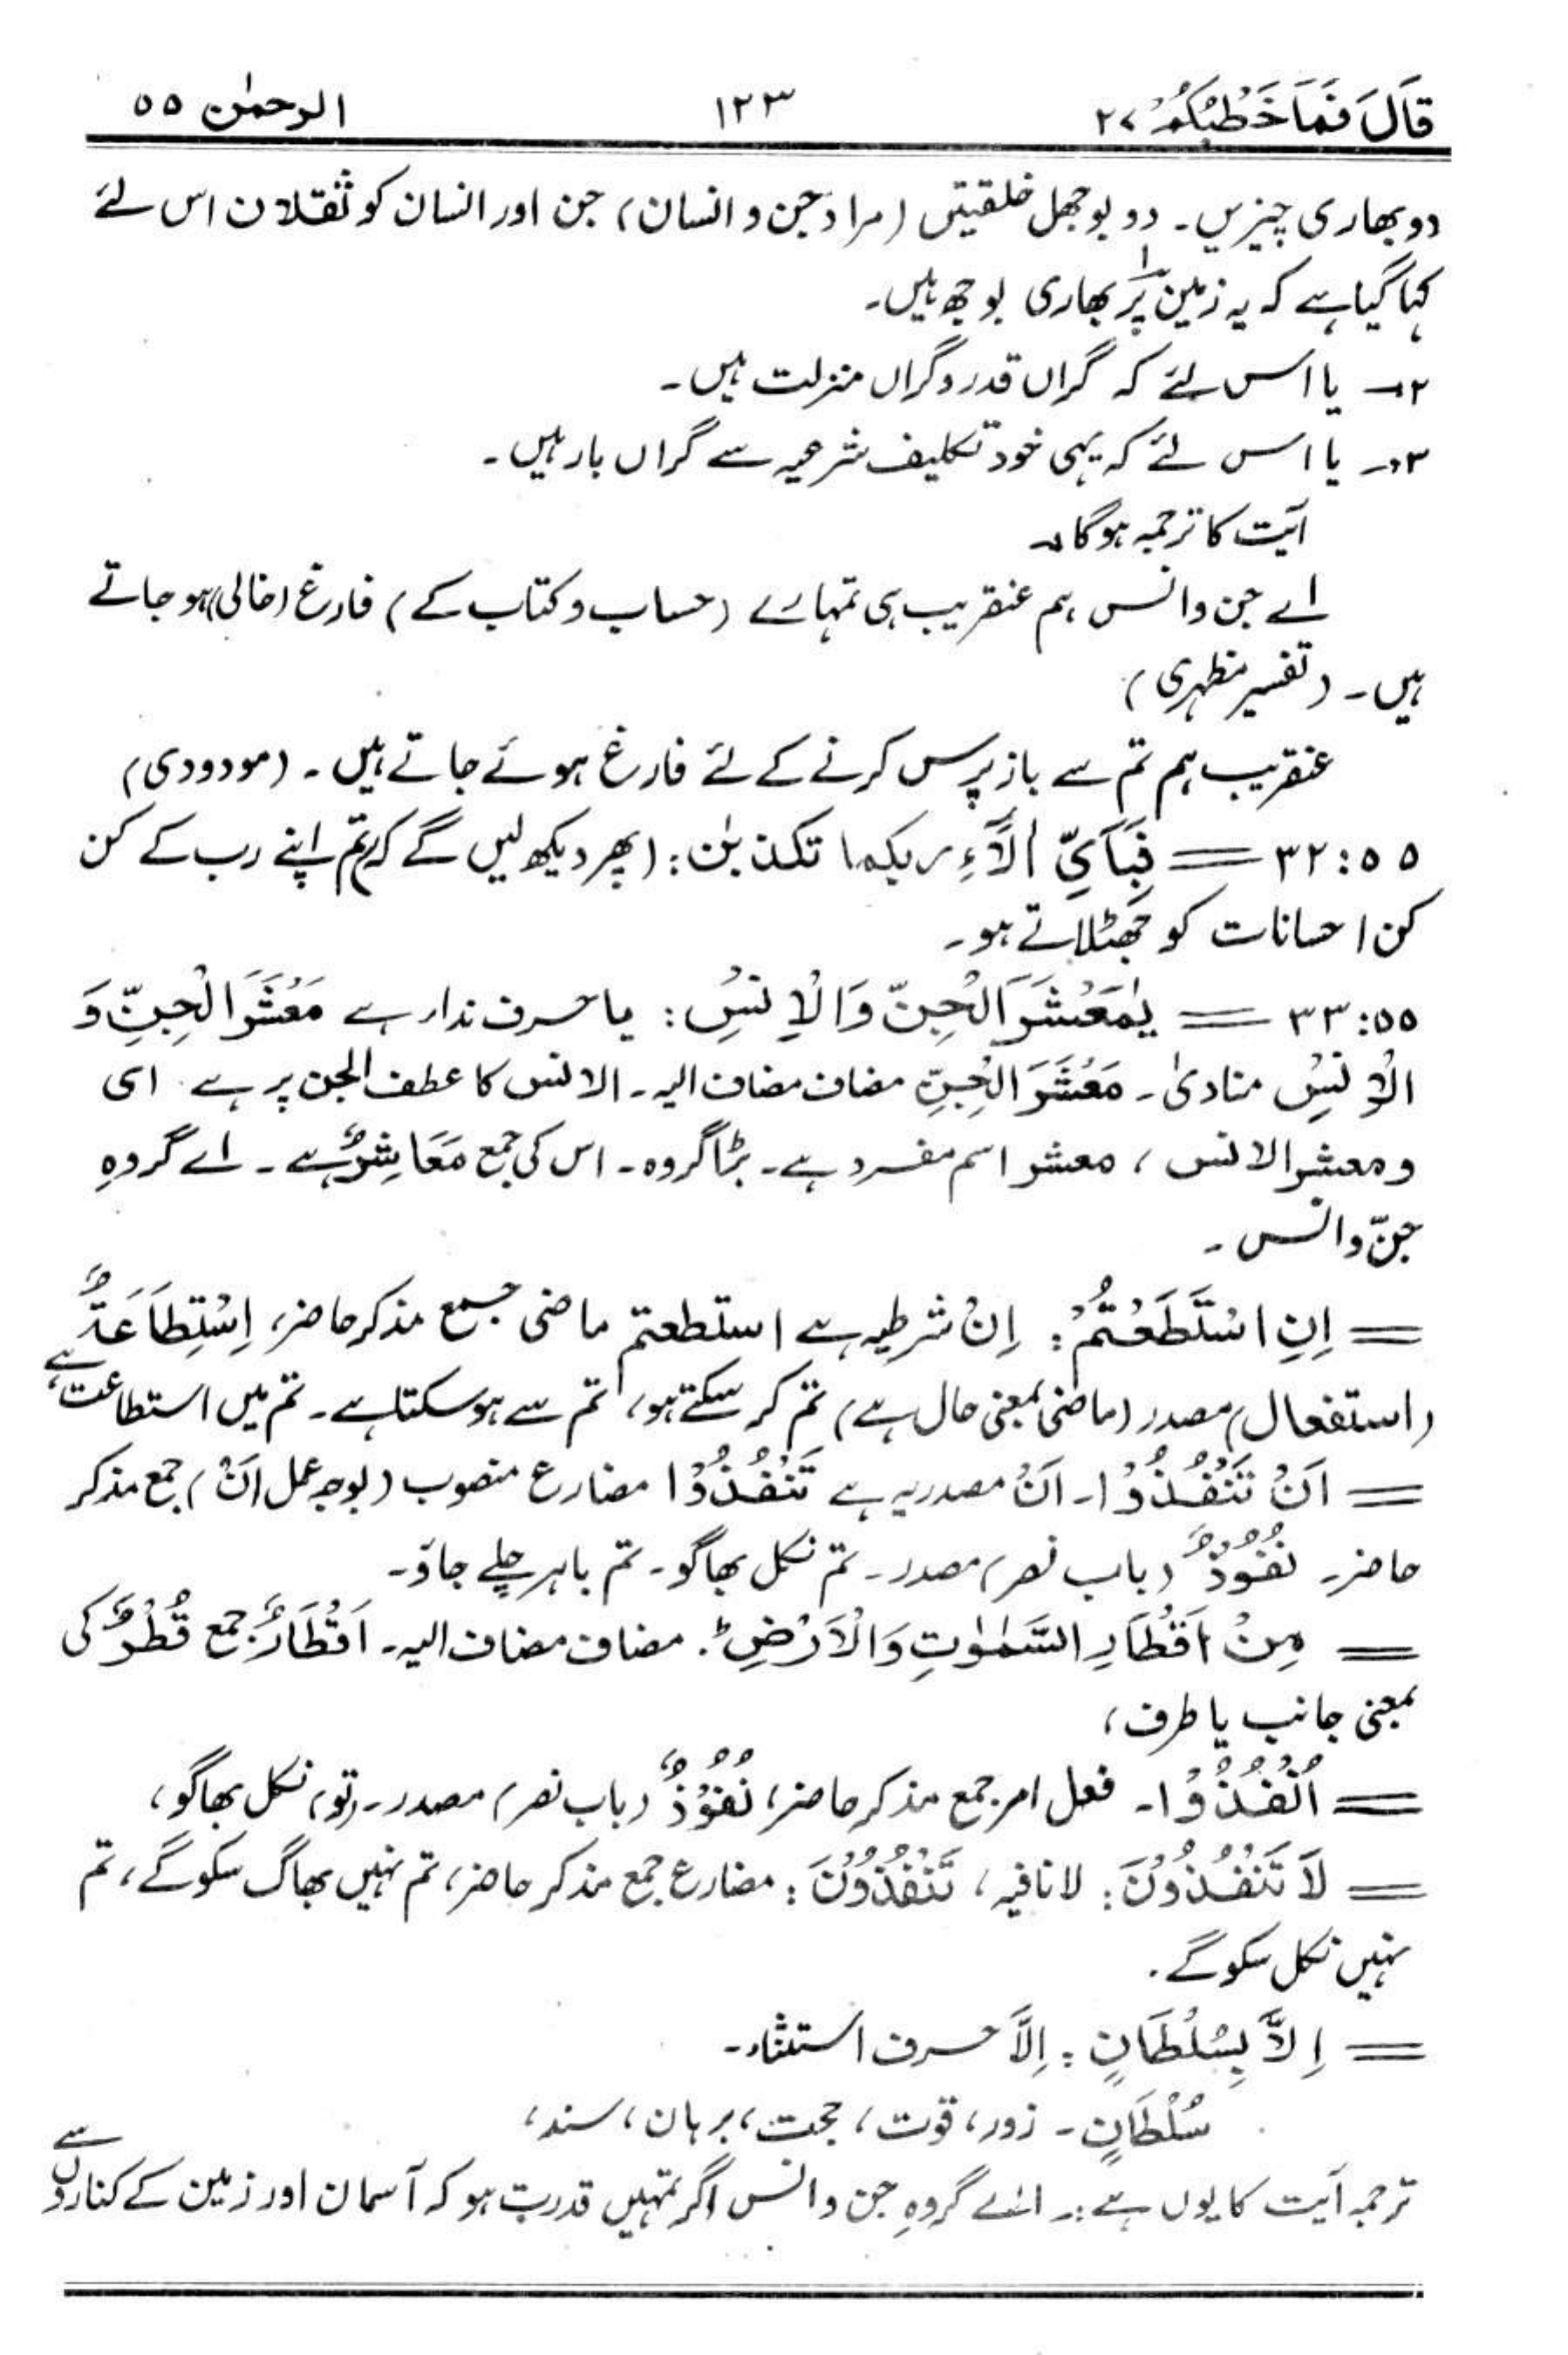 قَالَ فَمَا خَطْبُكُمْ ۲۷ ۱۲۳ الرحمٰن ۵۵
دو بھاری چیزیں۔ دو بوجھل خلقیتیں (مراد جن و انسان) جن اور انسان کو ثقلان اس لئے
کہا گیا ہے کہ یہ زمین پر بھاری بوجھ ہیں۔
۲۔ یا اس لئے کہ گراں قدر و گراں منزلت ہیں۔
۳۔ یا اس لئے کہ یہی خود تکلیف شرعیہ سے گراں بار ہیں۔
آیت کا ترجمہ ہوگا۔
اے جن و انس ہم عنقریب ہی تمہارے (حساب و کتاب کے) فارغ (خالی) ہو جاتے
ہیں۔ (تفسیر مظہری)
عنقریب ہم تم سے باز پرس کرنے کے لئے فارغ ہوئے جاتے ہیں۔ (مودودی)
۵۵:۳۲ = فَبِاَيِّ اٰلَآءِ ربكما تكذبٰن: (پھر دیکھ لیں گے کہ) تم اپنے رب کے کن
کن احسانات کو جھٹلاتے ہو۔
۵۵:۳۳ = يٰمَعْشَرَ الْجِنِّ وَالْاِنْسِ: یا حرف ندار ہے مَعْشَرَ الْجِنِّ وَ
الْاِنْسِ منادیٰ۔ مَعْشَرَ الْجِنِّ مضاف مضاف الیہ۔ الانس کا عطف الجن پر ہے۔ ای
ومعشر الانس، معشر اسم مفرد ہے۔ بڑا گروہ۔ اس کی جمع مَعَاشِرُ ہے۔ اے گروہِ
جنّ و انس۔
= اِنِ اسْتَطَعْتُمْ: اِنْ شرطیہ ہے استطعتم ماضی جمع مذکر حاضر، اِسْتِطَاعَةٌ
(استفعال) مصدر (ماضی بمعنی حال ہے) تم کر سکتے ہو، تم سے ہو سکتا ہے۔ تم میں استطاعت ہے،
= اَنْ تَنْفُذُوْا۔ اَنْ مصدریہ ہے تَنْفُذُوْا مضارع منصوب (بوجہ عمل اَنْ) جمع مذکر
حاضر۔ نُفُوْذٌ (باب نصر) مصدر۔ تم نکل بھاگو۔ تم باہر چلے جاؤ۔
= مِنْ اَقْطَارِ السَّمٰوٰتِ وَالْاَرْضِ ط۔ مضاف مضاف الیہ۔ اَقْطَارٌ جمع قُطْرٌ کی
بمعنی جانب یا طرف،
= اُنْفُذُوْا۔ فعل امر جمع مذکر حاضر، نُفُوْذٌ (باب نصر) مصدر۔ (تو) نکل بھاگو،
= لَا تَنْفُذُوْنَ: لا نافیہ، تَنْفُذُوْنَ: مضارع جمع مذکر حاضر، تم نہیں بھاگ سکو گے، تم
نہیں نکل سکو گے۔
= اِلَّا بِسُلْطَانٍ: اِلَّا حرف استثناء۔
سُلْطَانٍ۔ زور، قوت، حجت، برہان، سند،
ترجمہ آیت کا یوں ہے:۔ اے گروہِ جن و انس اگر تمہیں قدرت ہو کہ آسمان اور زمین کے کناروں سے